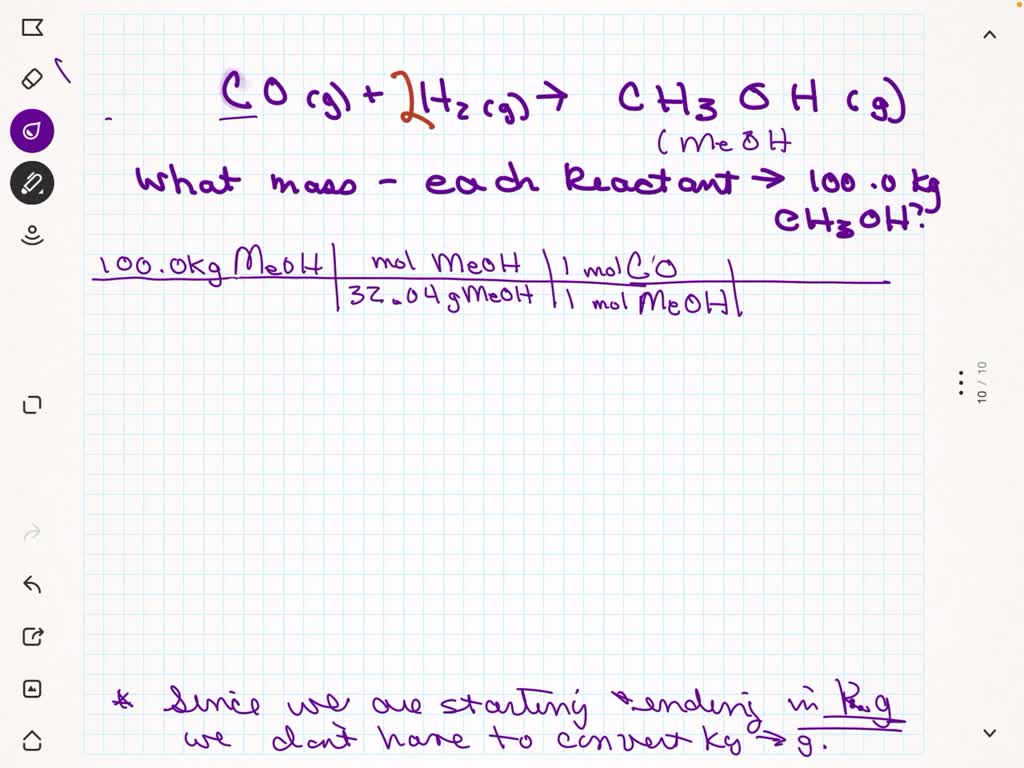 CO(g) + 2H2(g) → CH3OH(g)
(MeOH
What mass - each Reactant → 100.0 kg
CH3OH?
100.0kg MeOH | mol MeOH | 1 mol CO |
32.04g MeOH | 1 mol MeOH |
* Since we are starting + ending in Kg
we don't have to convert kg → g.
10 / 10